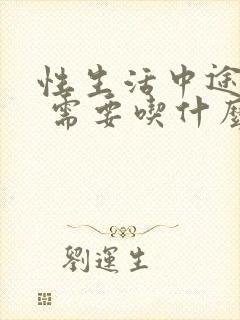 性生活中途
需要喫什麼
劉運生